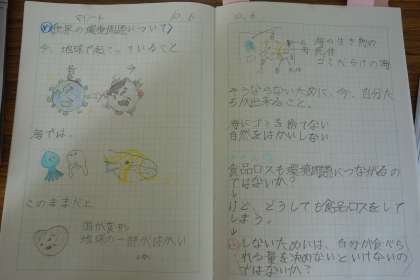 10.6
環境問題について
今、地球で起こっていること
海では、
このままだと
海が変形
地球の一部がはかい
10.6
海の生き物の
ゴミだらけの海
そうならないために、今、自分た
ちが出来ること。
海にゴミを捨てない
自然をはかいしない
食品ロスも環境問題につながるの
ではないか?
↓
けど、どうしても食品ロスをして
しまう。
↓
しないためには、自分が食べら
れる量を決めないといけないの
ではないか?